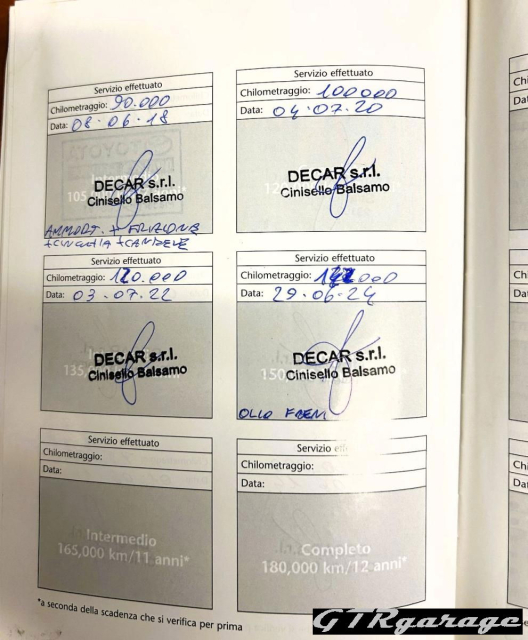 Servizio effettuato
Chilometraggio: 90.000
Data: 08·06·18
DECAR s.r.l.
Cinisello Balsamo
AMMORT. + FRIZIONE
+ CINGHIA + CANDELE
Servizio effettuato
Chilometraggio: 100000
Data: 04·07·20
DECAR s.r.l.
Cinisello Balsamo
Servizio effettuato
Chilometraggio: 120.000
Data: 03·07·22
DECAR s.r.l.
Cinisello Balsamo
Servizio effettuato
Chilometraggio: 000
Data: 29·06·24
DECAR s.r.l.
Cinisello Balsamo
OLIO FRENI
Servizio effettuato
Chilometraggio:
Data:
Intermedio
165,000 km/11 anni*
Servizio
Chilometraggio:
Data:
Completo
180,000 km/12 anni*
*a seconda della scadenza che si verifica per prima
GTRgarage